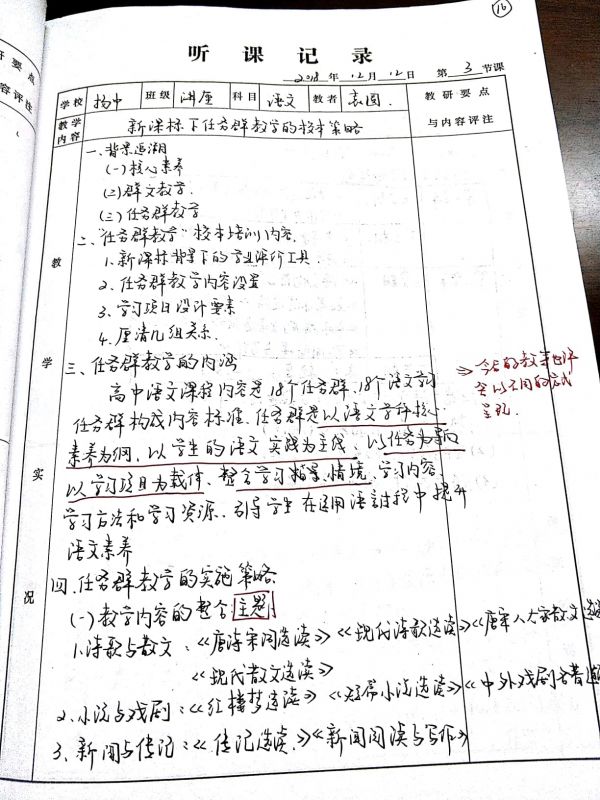 16
听课记录
2018年12月12日 第3节课
学校 扬中 班级 讲座 科目 语文 教者 袁圆 教研要点
与内容评注
教学内容 新课标下任务群教学的校本策略
研要点
内容评注
教学实况
一、背景追溯
(一)核心素养
(二)群文教学
(三)任务群教学
二、"任务群教学"校本培训内容
1.新课标背景下的学业评价工具
2.任务群教学内容设置
3.学习项目设计要素
4.厘清几组关系
三、任务群教学的内涵
高中语文课程内容是18个任务群,18个语文学习
任务群构成内容标准。任务群是以语文学科核心
素养为纲,以学生的语文实践为主线,以任务为导向
以学习项目为载体,整合学习情景、情境、学习内容、
学习方法和学习资源,引导学生在运用语言过程中提升
语文素养
⇒今后的教学
会以不同的方式
呈现
四、任务群教学的实施策略
(一)教学内容的整合 主题
1.诗歌与散文:《唐诗宋词选读》《现代诗歌选读》《唐宋八大家散文选读
《现代散文选读》
2.小说与戏剧:《红楼梦选读》《短篇小说选读》《中外戏剧名著选
3.新闻与传记:《传记选读》《新闻阅读与写作》